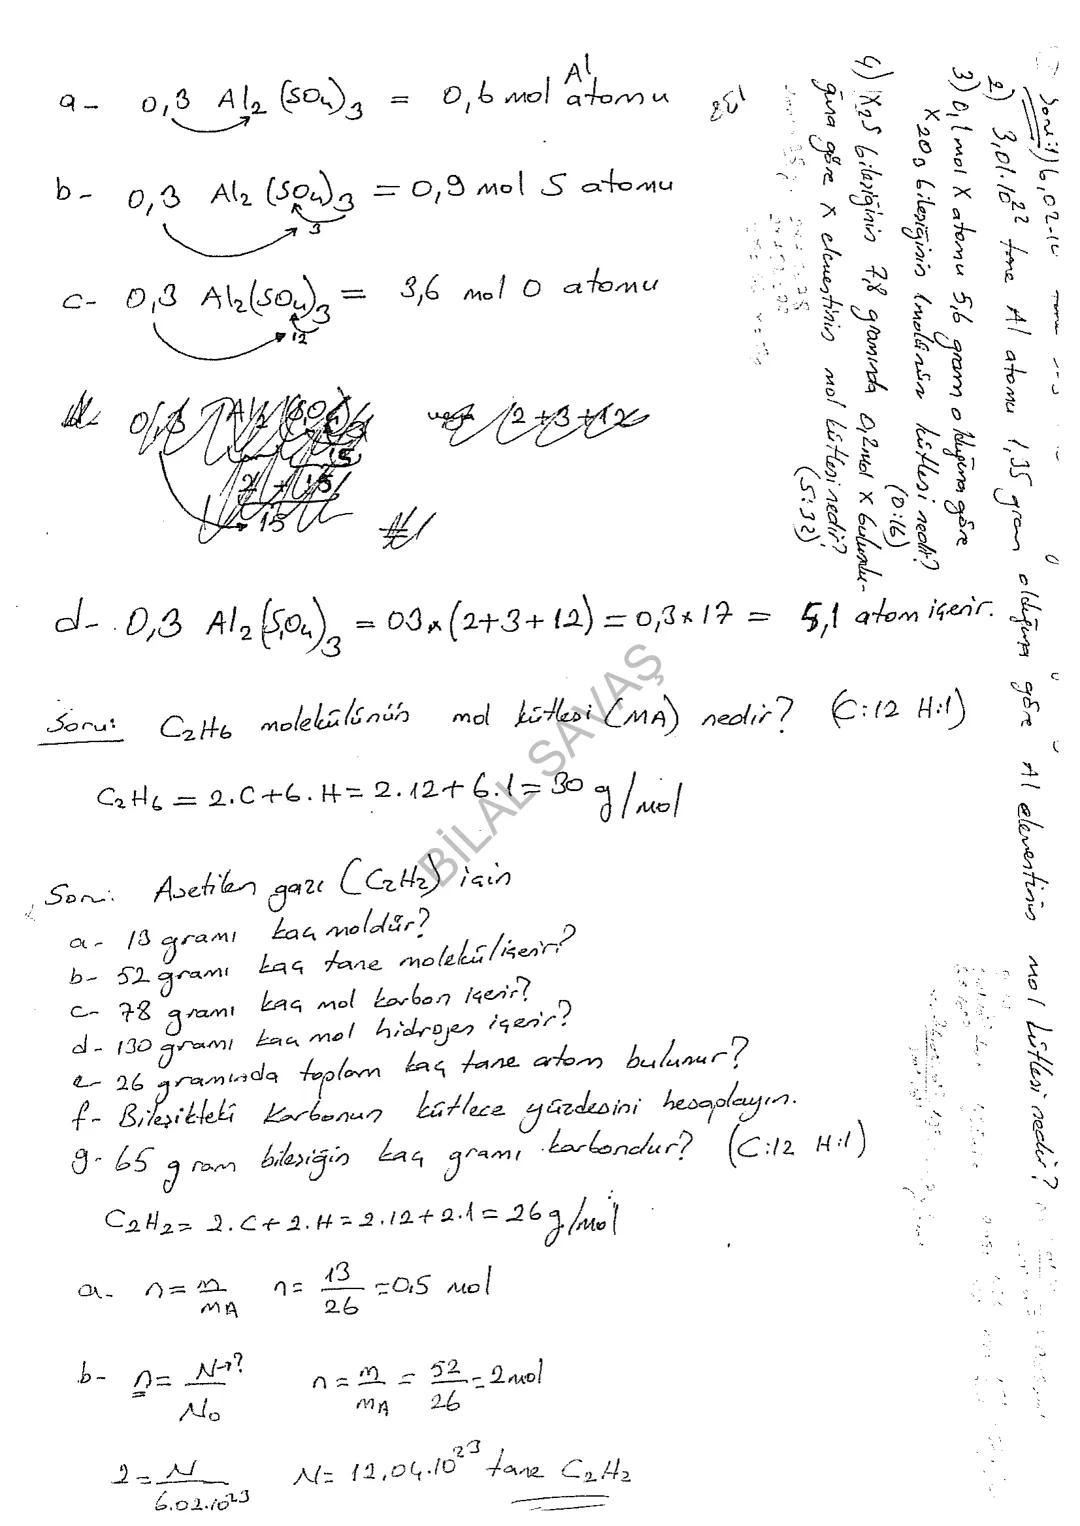 a- 0,3 Al2(SO4)3 = 0,6 mol Al atomu
b- 0,3 Al2(SO4)3 = 0,9 mol S atomu
3
c- 0,3 Al2(SO4)3 = 3,6 mol O atomu
12
d- 0,3 Al2(SO4)3 = 03x(2+3+12) = 0,3x17 = 5,1 atom içerir.
Soru: C2H6 molekülünün mol kütlesi (MA) nedir? (C:12 H:1)
C2H6 = 2.C+6.H = 2.12+6.1 = 30 g/mol
Soru: Asetilen gazı (C2H2) için
a- 13 gramı kaç moldür?
b- 52 gramı kaç tane molekül içerir?
c- 78 gramı kaç mol karbon içerir?
d- 130 gramı kaç mol hidrojen içerir?
e- 26 gramında toplam kaç tane atom bulunur?
f- Bileşikteki Karbonun kütlece yüzdesini hesaplayın.
g- 65 gram bileşiğin kaç gramı karbondur? (C:12 H:1)
C2H2 = 2.C+2.H = 2.12+2.1 = 26 g/mol
a- n = m/MA n = 13/26 = 0.5 mol
b- n = N→?/No n = m/MA = 52/26 = 2 mol
2 = N/6.02.10^23 N = 12,04.10^23 tane C2H2
Soru:1) 6,02.10
2) 3,01.10^22 tane Al atomu 1,35 gram olduğuna göre Al elementinin mol kütlesi nedir?
3) 0,1 mol X atomu 5,6 gram olduğuna göre
X2O3 bileşiğinin 1 molünün kütlesi nedir?
(O:16)
4) X2S bileşiğinin 7,8 gramında 0,2 mol X bulundu-
ğuna göre X elementinin mol kütlesi nedir?
(S:32)
BİLAL SAVAŞ